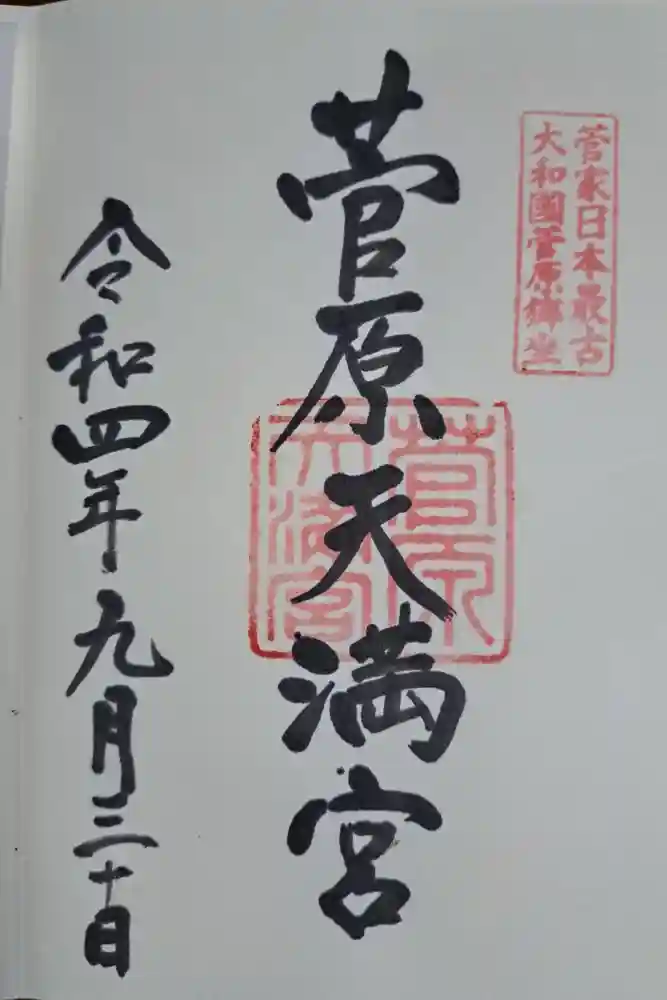 菅家日本最古
大和國菅原鎮坐
菅原天満宮
菅原
天満宮
令和四年九月三十日